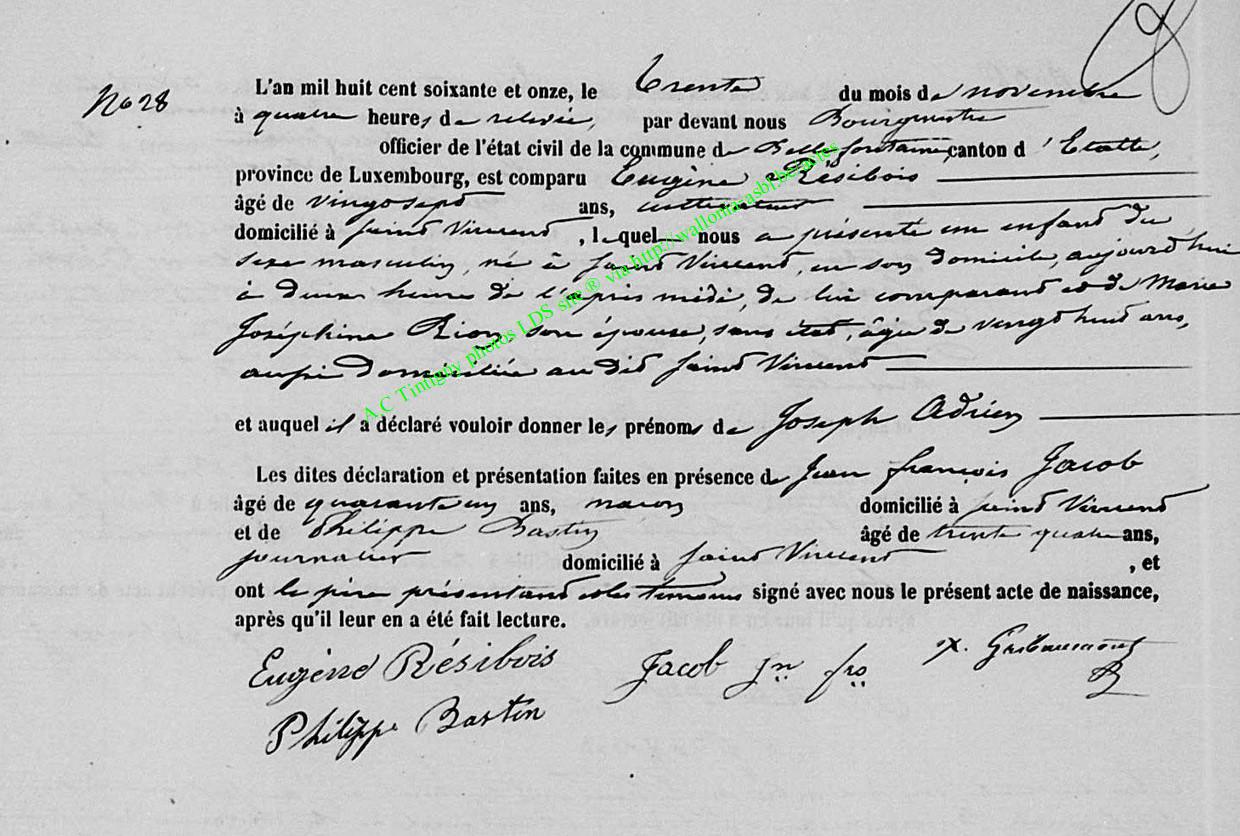 No 28
L'an mil huit cent soixante et onze, le trente du mois de novembre
à quatre heures de relevée, par devant nous Bourgmestre
officier de l'état civil de la commune de Bellefontaine, canton d'Etalle,
province de Luxembourg, est comparu Eugène Résibois
âgé de vingt sept ans, cultivateur
domicilié à Saint Vincent, lequel nous a présenté un enfant du
sexe masculin, né à Saint Vincent, en son domicile, aujourd'hui
à deux heure de l'après midi, de lui comparant et de Marie
Joséphine Rion, son épouse, sans état, âgée de vingt huit ans,
aussi domiciliée au dit Saint Vincent
et auquel il a déclaré vouloir donner les prénoms de Joseph Adrien
Les dites déclaration et présentation faites en présence de Jean françois Jacob
âgé de quarante un ans, maçon domicilié à Saint Vincent
et de Philippe Bastin âgé de trente quatre ans,
journalier domicilié à Saint Vincent, et
ont le père présentant et les témoins signé avec nous le présent acte de naissance,
après qu'il leur en a été fait lecture.
Eugène Résibois Jacob Jn fro
Philippe Bastin
A.C Tintigny photos LDS site ® via http://wallomarasbl.be/tables